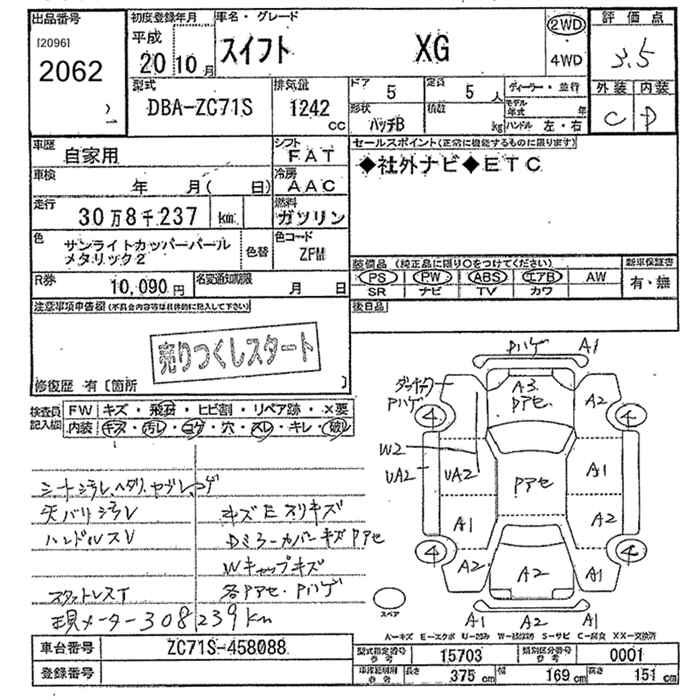 出品番号
[20961
2062
初度登録年月
平成
20 10月
車名・グレード
スイフト XG
2WD
4WD
評価点
3.5
型式
DBA-ZC71S
排気量
1242
CC
ドア
5
定員
5人
形状
ハッチB
積数
kg
ディーラー・並行
モデル年式 年
ハンドル 左・右
外装 内装
C D
車歴
自家用
シフト
FAT
セールスポイント(正常に機能するものに限ります)
◆社外ナビ◆ETC
車検
年 月( 日)
冷房
AAC
走行
30万8千237 km
燃料
ガソリン
色
サンライトカッパーパール
メタリック2
色替
色コード
ZFM
装備品 (純正品に限り○をつけてください)
新車保証書
PS PW ABS エアB AW
有・無
SR ナビ TV カワ
R券
10,090円
名変通知期限
月 日
後日品
注意事項申告欄(不具合内容等は具体的に記入して下さい)
売りつくしスタート
修復歴 有〔箇所 〕
検査員
記入欄
FW キズ・飛石・ヒビ割・リペア跡・×要
内装 キズ・汚レ・コゲ・穴・スレ・キレ・破レ
シートシラレ、ヘタリ、ヤブレ、コゲ
ハンドルスレ
キズEスリキズ
DミラーカバーキズPアセ
Wキャップキズ
各Pアセ・Pハゲ
現メーター308239km
Pハゲ A1
A3
Pアセ
A2
Pハゲ
4 4
W2
UA2 UA2
Pアセ
A1
A1 A2
4 4
A2 A2 A1
スペア
A1 A2 A1
A-キズ E-エクボ U-凹み W-補修跡 S-サビ C-腐食 XX-交換済
車台番号
ZC71S-458088
型式指定番号
15703
類別区分番号
0001
登録番号
長さ
375 cm
幅
169 cm
高さ
151 cm